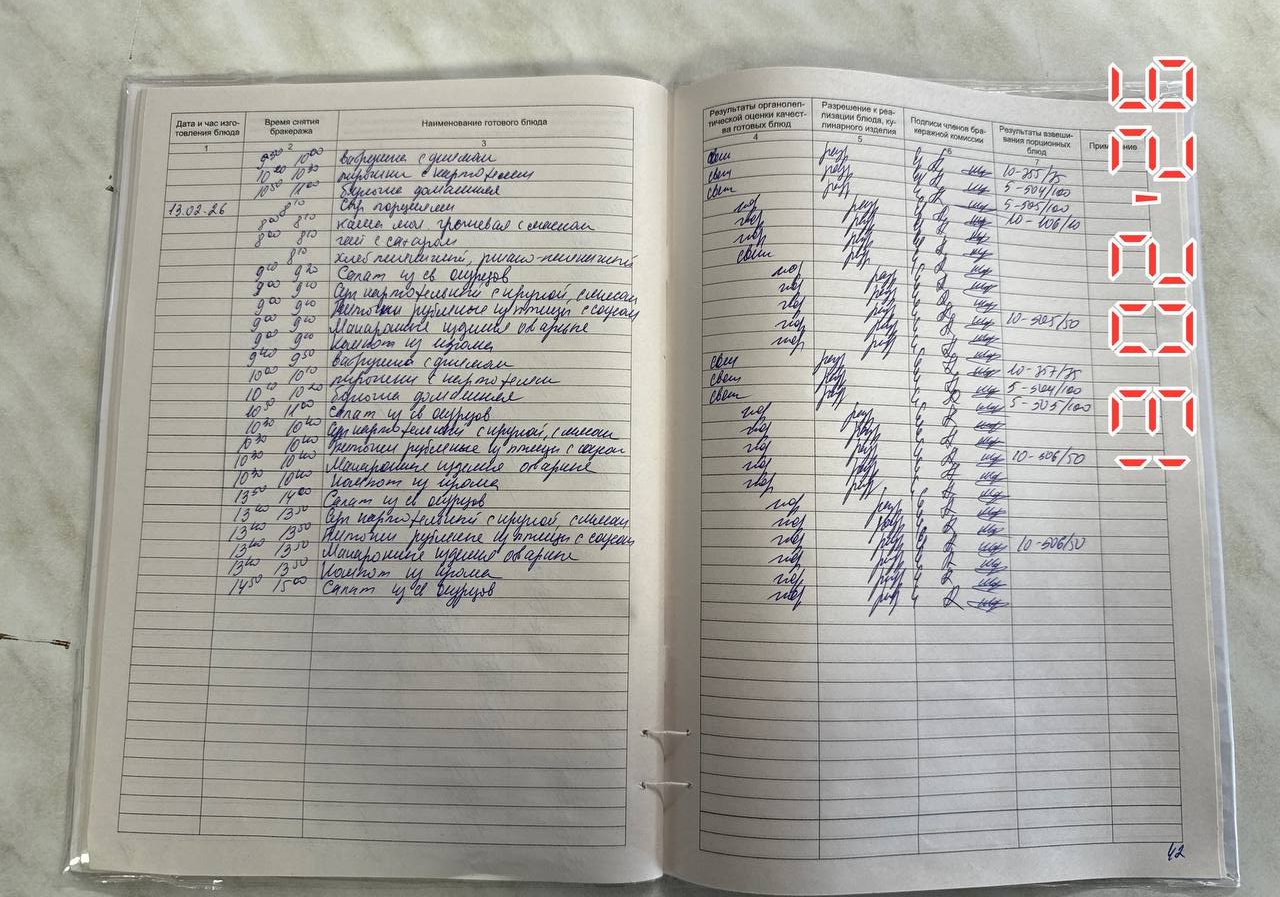 Дата и час изго-
товления блюда
Время снятия
бракеража
Наименование готового блюда
1
2
3
9 50 10 00 ватрушка с джемом
10 20 10 30 пирожки с картофелем
10 50 11 00 булочка домашняя
13.02.26 8 10 Сыр порциями
8 00 8 10 каша мол гречневая с маслом
8 00 8 10 чай с сахаром
8 10 хлеб пшеничный, ржано-пшеничный
9 10 9 20 Салат из св огурцов
9 00 9 10 Суп картофельный с крупой, с мясом
9 00 9 10 Биточки рубленые из птицы с соусом
9 00 9 10 Макаронные изделия отварные
9 00 9 10 Компот из изюма
9 40 9 50 ватрушка с джемом
10 00 10 10 пирожки с картофелем
10 10 10 20 булочка домашняя
10 50 11 00 Салат из св огурцов
10 30 10 40 Суп картофельный с крупой, с мясом
10 30 10 40 Биточки рубленые из птицы с соусом
10 30 10 40 Макаронные изделия отварные
10 30 10 40 Компот из изюма
13 50 14 00 Салат из св огурцов
13 40 13 50 Суп картофельный с крупой, с мясом
13 40 13 50 Биточки рубленые из птицы с соусом
13 40 13 50 Макаронные изделия отварные
13 40 13 50 Компот из изюма
14 50 15 00 Салат из св огурцов
Результаты органолеп-
тической оценки качест-
ва готовых блюд
Разрешение к реа-
лизации блюда, ку-
линарного изделия
Подписи членов бра-
керажной комиссии
Результаты взвеши-
вания порционных
блюд
Примечание
4
5
6
7
соот разр 10-755/75
соот разр 5-504/100
соот разр 5-505/100
гот разр 10-106/10
гот разр
гот разр
соот разр
гот разр
гот разр
гот разр 10-505/50
гот разр
гот разр
соот разр 10-757/75
соот разр 5-504/100
соот разр 5-505/100
гот разр
гот разр
гот разр 10-506/50
гот разр
гот разр
гот разр
гот разр
гот разр 10-506/50
гот разр
гот разр
гот разр
42
13.02.'26